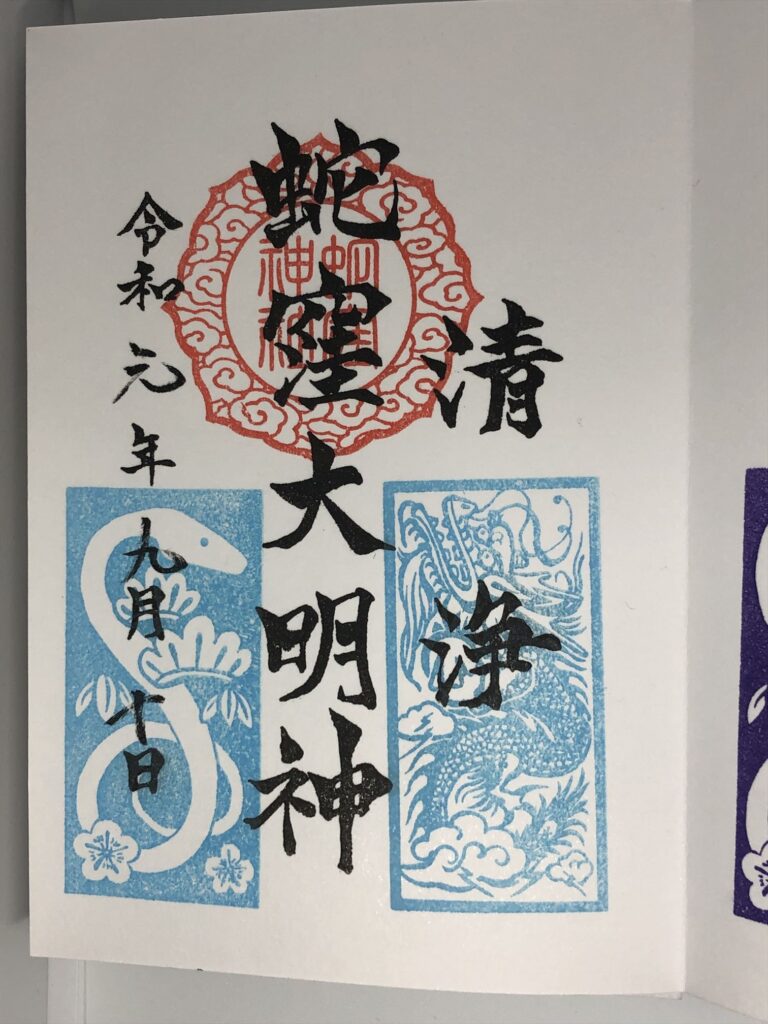 清浄
蛇窪大明神
令和元年九月十日
蛇窪
神社